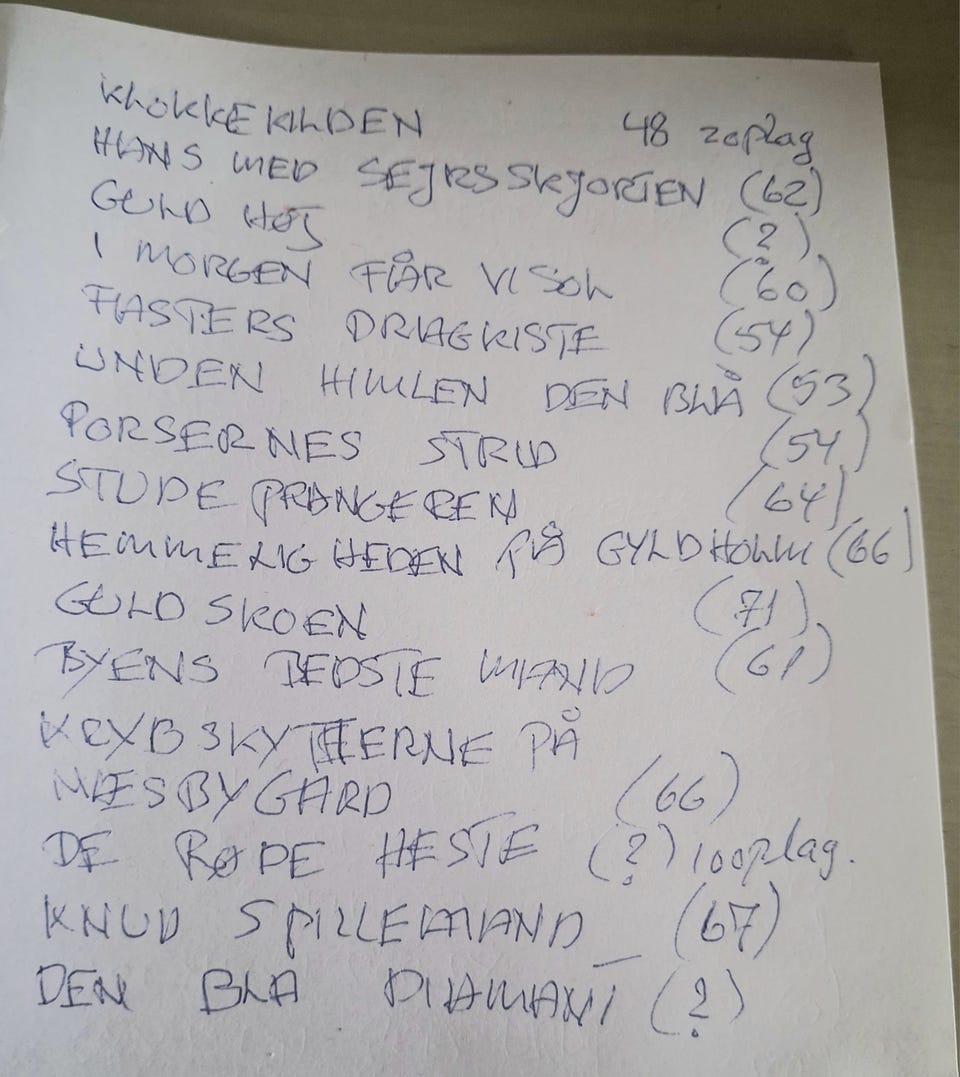 KLOKKEKILDEN 48 2oplag
HANS MED SEJRSSKJORTEN (62)
GULD HØJ (?)
I MORGEN FÅR VI SOL (60)
FASTERS DRAGKISTE (54)
UNDEN HIMLEN DEN BLÅ (53)
PORSERNES STRID (54)
STUDEPRANGEREN (64)
HEMMELIGHEDEN PÅ GYLDHOLM (66)
GULDSKOEN (71)
BYENS BEDSTE MAND (61)
KRYBSKYTTERNE PÅ
NÆSBYGARD (66)
DE RØDE HESTE (?) 10oplag.
KNUD SPILLEMAND (67)
DEN BLA DIAMANT (?)